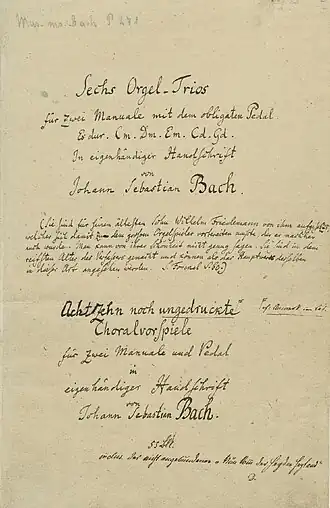 Mus. ms. Bach P 271
Sechs Orgel-Trios
für zwei Manuale mit dem obligaten Pedal
Es dur. Cm. Dm. Em. Cd. Gd.
In eigenhändiger Handschrift
von
Johann Sebastian Bach.
(Sie sind für seinen ältesten Sohn Wilhelm Friedemann von ihm aufgesetzt,
welcher sich damit zu dem großen Orgelspieler vorbereiten mußte, der er nachher
auch wurde. Man kann von ihrer Schönheit nicht genug sagen. Sie sind in dem
reifsten Alter des Verfassers gemacht und können als das Hauptwerk desselben
in dieser Art angesehen werden. S. Forkel S. 60)
Achtzehn noch ungedruckte
Choralvorspiele
für zwei Manuale und Pedal
in
eigenhändiger Handschrift
von
Johann Sebastian Bach.
55 Bll.
der Heyden Heyland"